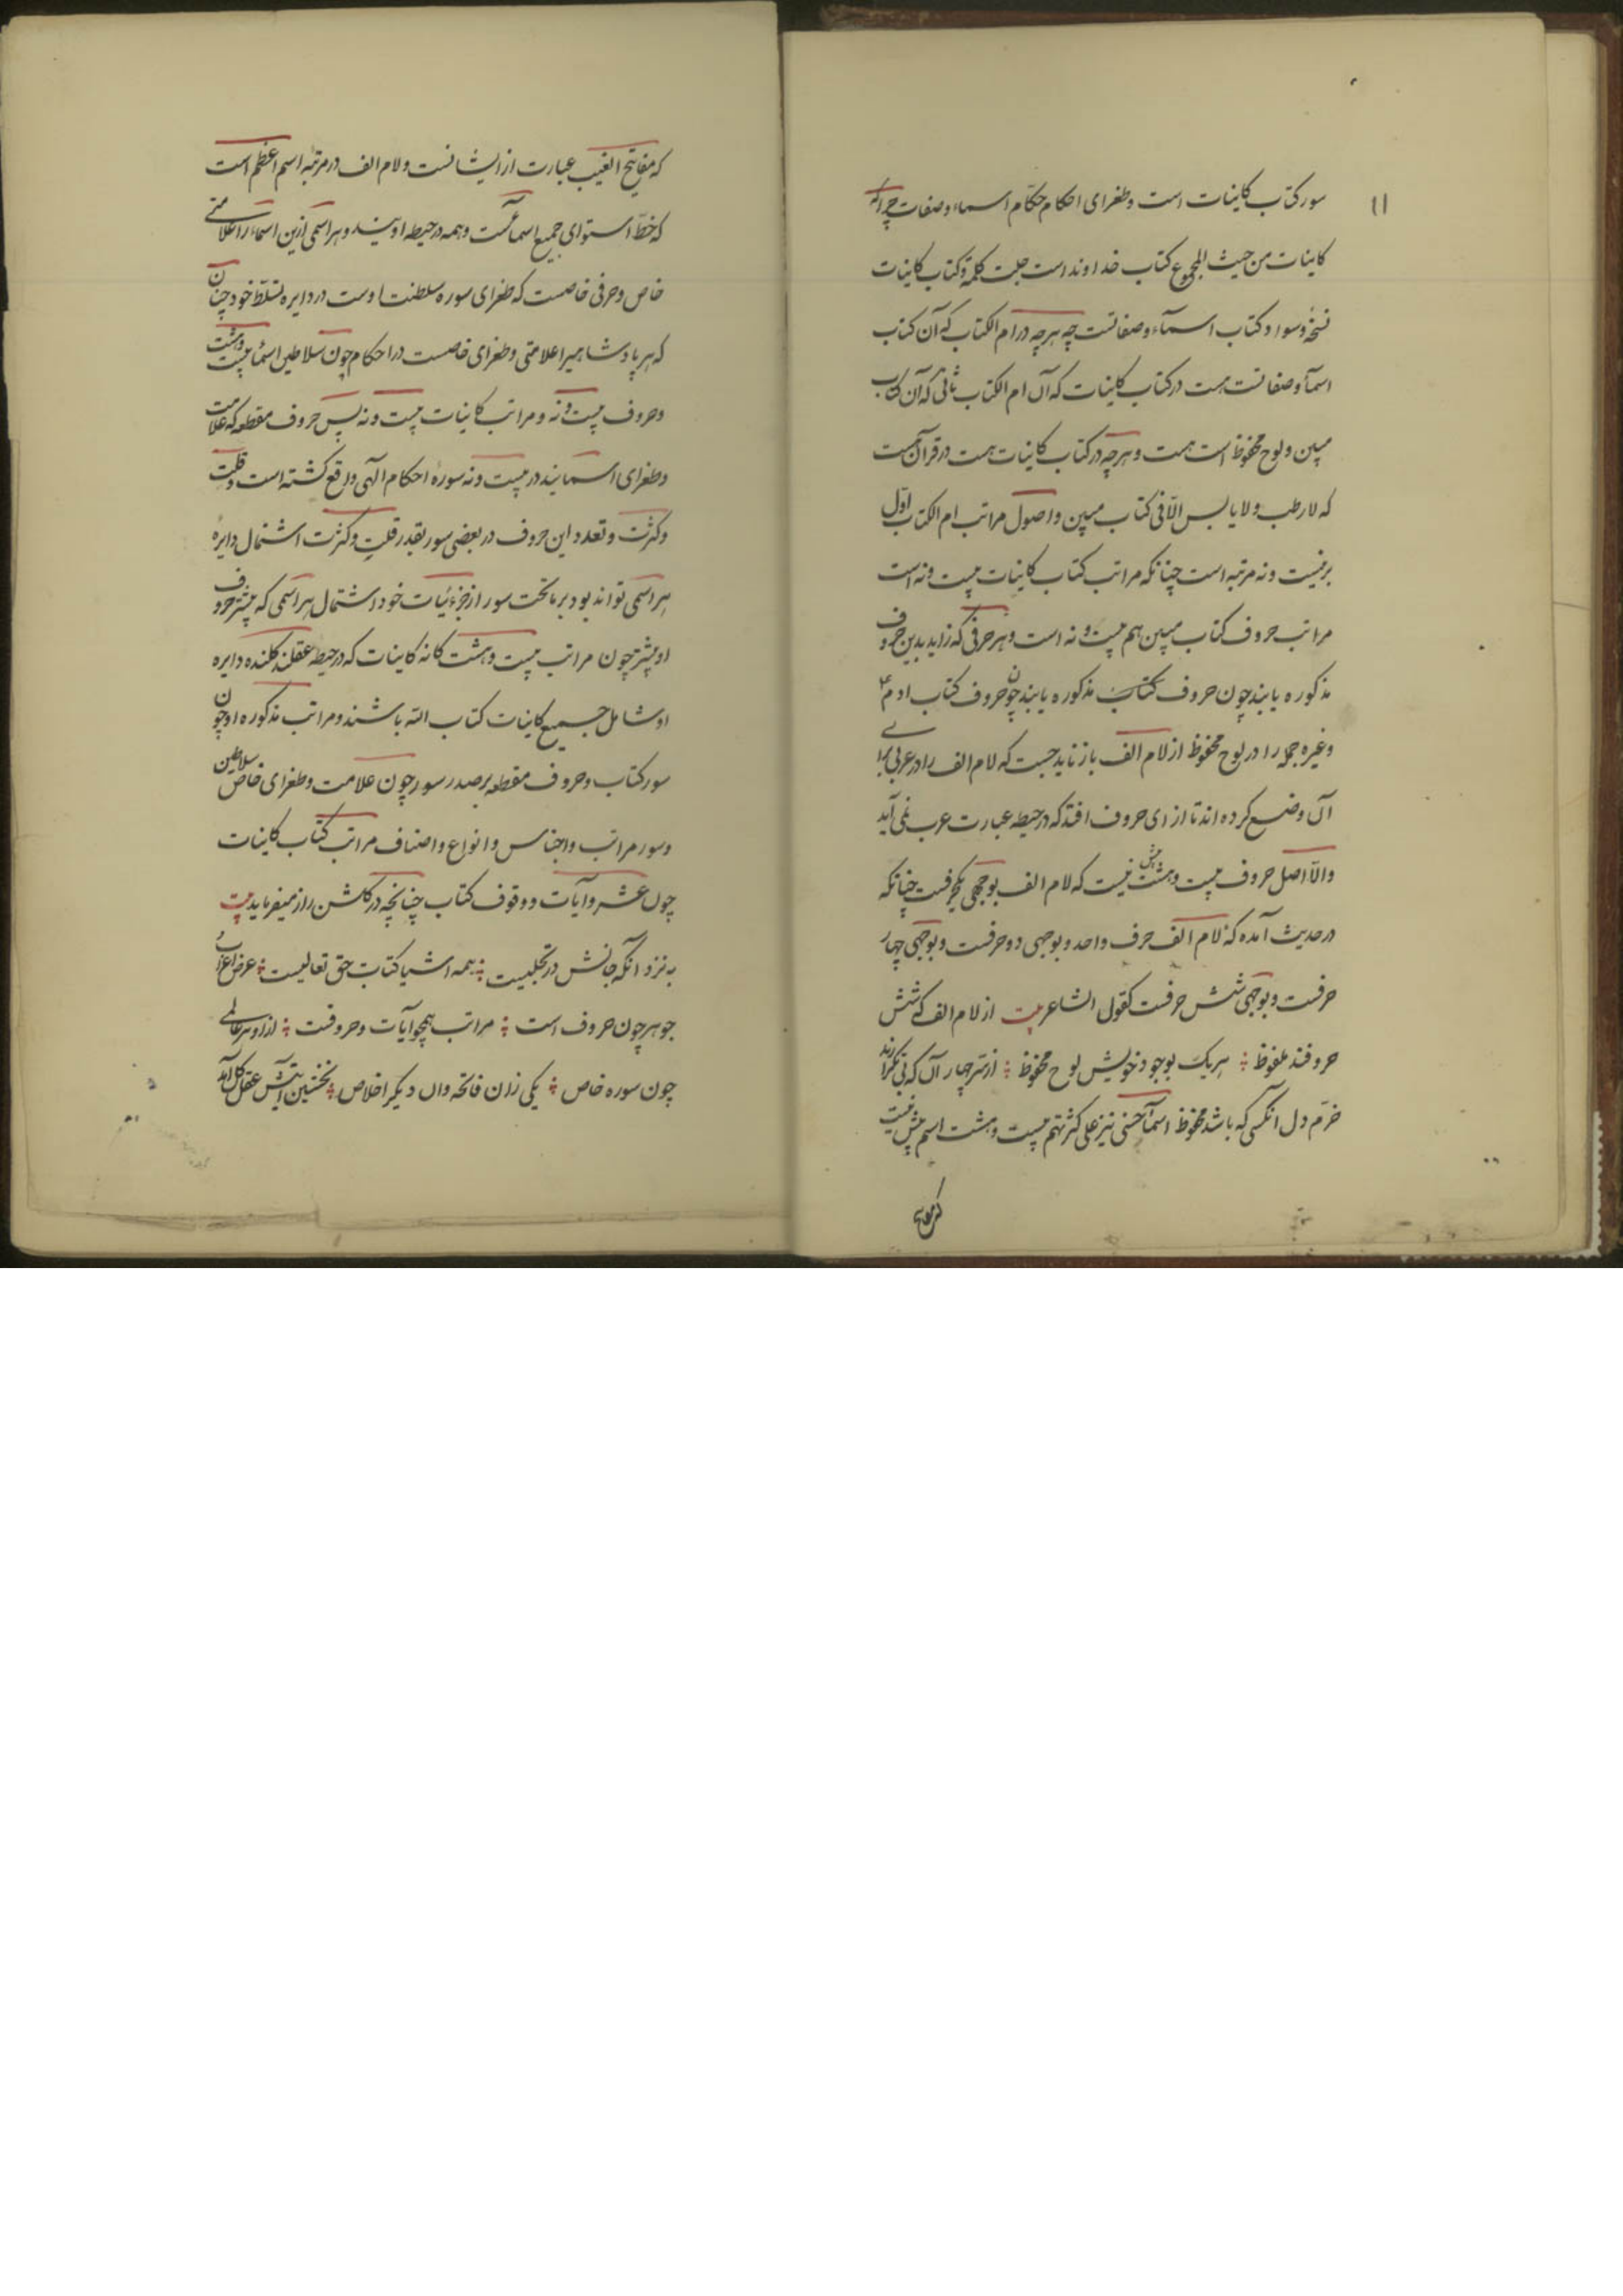 ۱۱
سور کتاب کاینات است و طغرای احکام حکّام اسماء و صفات چرا که
کاینات من حیث المجموع کتاب خداوند است جلت کلمته و کتاب کاینات
نسخه و سواد کتاب اسمآء و صفاتست چه هرچه در ام الکتاب که آن کتاب
اسمآ و صفاتست هست در کتاب کاینات که آن ام الکتاب ثانی که آن کتاب
مبین و لوح محفوظ است هست و هرچه در کتاب کاینات هست در قرآن هست
که لا رطب و لا یابس الّا فی کتاب مبین و اصول مراتب ام الکتاب اوّل
بر بیست و نه مرتبه است چنانکه مراتب کتاب کاینات بیست و نه است
مراتب حروف کتاب مبین هم بیست و نه است و هر حرفی که زاید بدین حروف
مذکوره یابند چون حروف کتاب مذکوره یابند چون حروف کتاب ادم ع
و غیره جمله را در لوح محفوظ از لام الف باز نماید جست که لام الف را در عربی برای
آن وضع کرده اند تا ازای حروف افتد که در حیطه عبارت عرب نمی آید
و الّا اصل حروف بیست و هشت بیش نیست که لام الف بوجهی یکحرفست چنانکه
در حدیث آمده که لام الف حرف واحد و بوجهی دو حرفست و بوجهی چهار
حرفست و بوجهی شش حرفست کقول الشاعر بیت از لام الف که شش
حروفند ملفوظ ؞ هر یک بوجود خویش لوح محفوظ ؞ از ستر چهار آن که بی تکرارند
خرّم دل انکسی که باشد محفوظ اسمآ حسنی نیز علی کثرتهم بیست و هشت اسم بیش نیست
که مفاتیح
که مفاتیح الغیب عبارت از ایشانست و لام الف در مرتبه اسم اعظم است
که خطّ استوای جمیع اسماست و همه در حیطه اویند و هر اسمی ازین اسماء را علامتی
خاص و حرفی خاصست که طغرای سوره سلطنت اوست در دایره تسلّط خود چنان
که هر پادشاهیرا علامتی و طغرای خاصست در احکام چون سلاطین اسماء بیست و هشت
و حروف بیست و نه و مراتب کاینات بیست و نه پس حروف مقطعه که علامت
و طغرای اسمایند در بیست و نه سوره احکام الهی واقع کشته است و قلّت
و کثرت و تعدد این حروف در بعضی سور بقدر قلت و کثرت اشتمال دایره
هر اسمی تواند بود بر ما تحت سور از جزئیات خود اشتمال هر اسمی که بیشتر حروف
او بیشتر چون مراتب بیست و هشت کانه کاینات که در حیطه عقلند کلنده دایره
او شامل جمیع کاینات کتاب الله باشند و مراتب مذکوره او چون
سور کتاب و حروف مقطعه بر صدر سور چون علامت و طغرای خاص سلاطین
و سور مراتب و اجناس و انواع و اصناف مراتب کتاب کاینات
چون عشر و آیات و وقوف کتاب چنانچه در کلشن راز میفرماید بیت
به نزد آنکه جانش در تجلیست ؞ همه اشیا کتاب حق تعالیست ؞ عرض اعراب و
جوهر چون حروف است ؞ مراتب همچو آیات وقوفست ؞ ازو هر عالمی
چون سوره خاص ؞ یکی زان فاتحه وان دیکر اخلاص ؞ نخستین آیتش عقل کل آمد